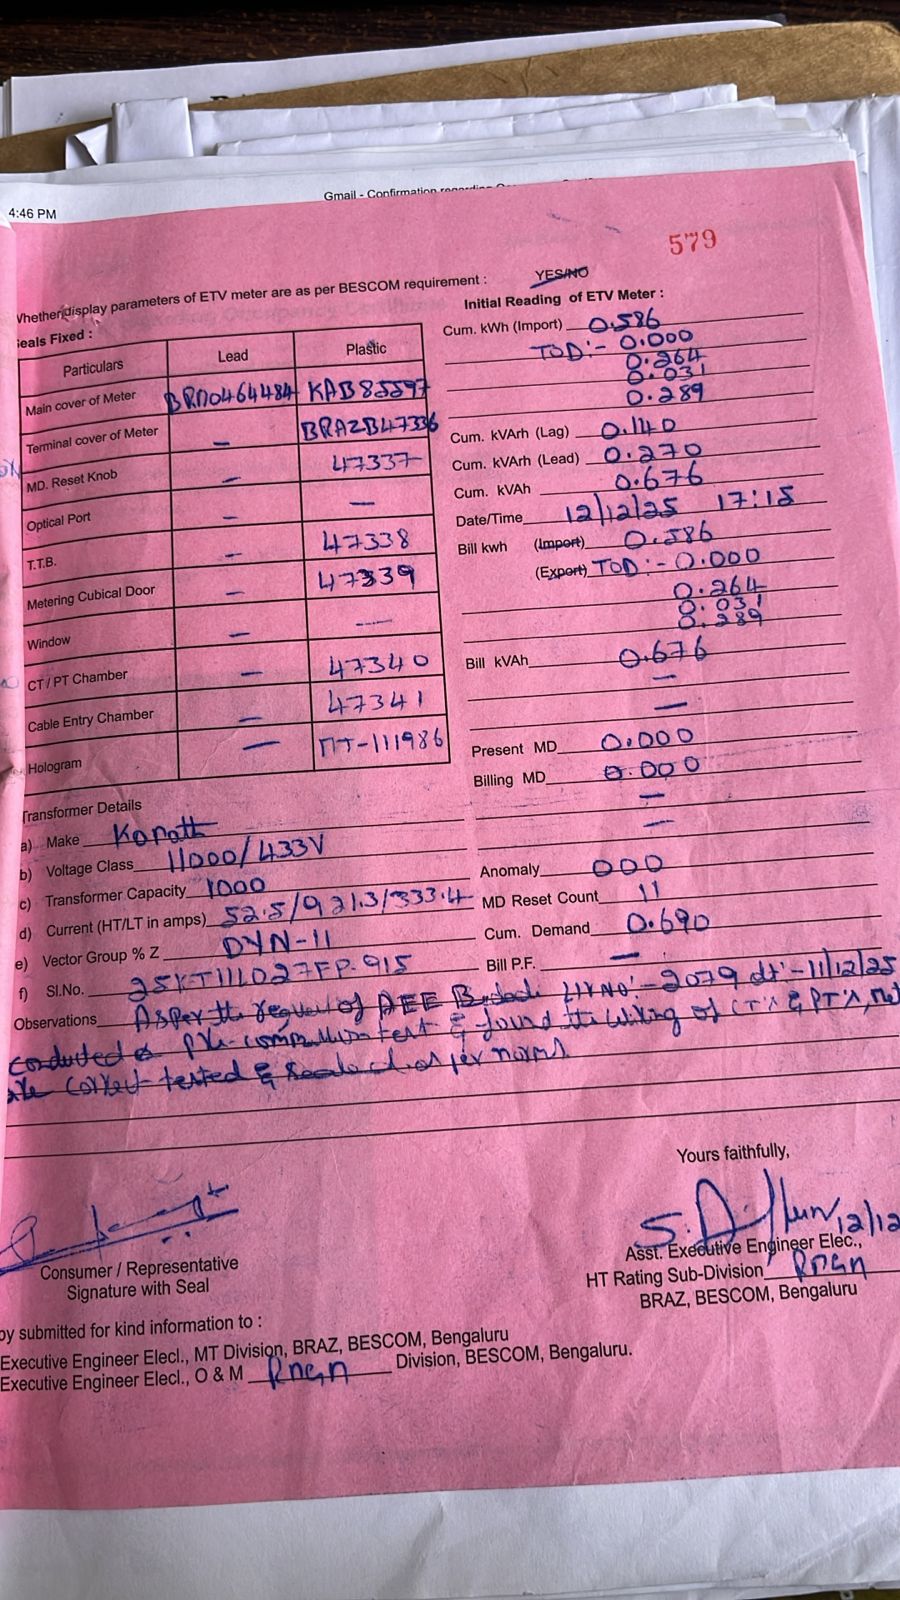 Gmail - Confirmation regarding
4:46 PM
579
Whether display parameters of ETV meter are as per BESCOM requirement : YES/NO
Seals Fixed :
Particulars Lead Plastic
Main cover of Meter BRD0464484 KAB85597
Terminal cover of Meter — BRAZB47336
MD. Reset Knob — 47337
Optical Port — —
T.T.B. — 47338
Metering Cubical Door — 47339
Window — —
CT / PT Chamber — 47340
Cable Entry Chamber — 47341
Hologram — MT-111986
Initial Reading of ETV Meter :
Cum. kWh (Import) 0.586
TOD:- 0.000
0.264
0.031
0.289
Cum. kVArh (Lag) 0.140
Cum. kVArh (Lead) 0.270
Cum. kVAh 0.676
Date/Time 12/12/25 17:15
Bill kwh (Import) 0.586
(Export) TOD:- 0.000
0.264
0.031
0.289
Bill kVAh 0.676
—
—
Present MD 0.000
Billing MD 0.000
—
—
Anomaly 000
MD Reset Count 11
Cum. Demand 0.690
Bill P.F. —
Transformer Details
a) Make
b) Voltage Class 11000/433V
c) Transformer Capacity 1000
d) Current (HT/LT in amps) 52.5/921.3/333.4
e) Vector Group % Z DYN-11
f) Sl.No.
Observations As per the request of AEE LTR NO:- 2079 dt:- 11/12/25
conducted pre-commission test & found the wiring of CT's & PT's,
are correct tested & sealed as per norms.
Yours faithfully,
12/12
Consumer / Representative
Signature with Seal
Asst. Executive Engineer Elec.,
HT Rating Sub-Division
BRAZ, BESCOM, Bengaluru
by submitted for kind information to :
Executive Engineer Elecl., MT Division, BRAZ, BESCOM, Bengaluru
Executive Engineer Elecl., O & M Division, BESCOM, Bengaluru.